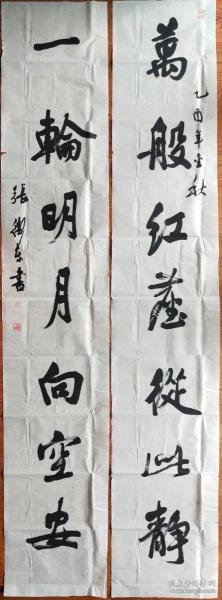 萬般紅蘆從此靜
乙酉年金秋
一輪明月向空安
張衛東書